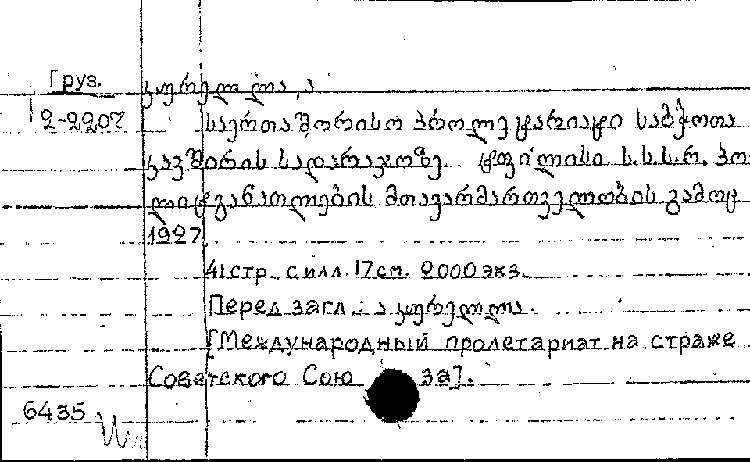 Груз.
2-2207
საერთაშორისო პროლეტარიატი საბჭოთა
კავშირის სადარაჯოზე. ტფილისი ს.ს.ს.რ. პო
ლიტგანათლების მთავარმართველობის გამოც
1927.
41 стр. с илл. 17 см. 2000 экз.
Перед загл.: ა
[Международный пролетариат на страже
Советского Союза].
6435